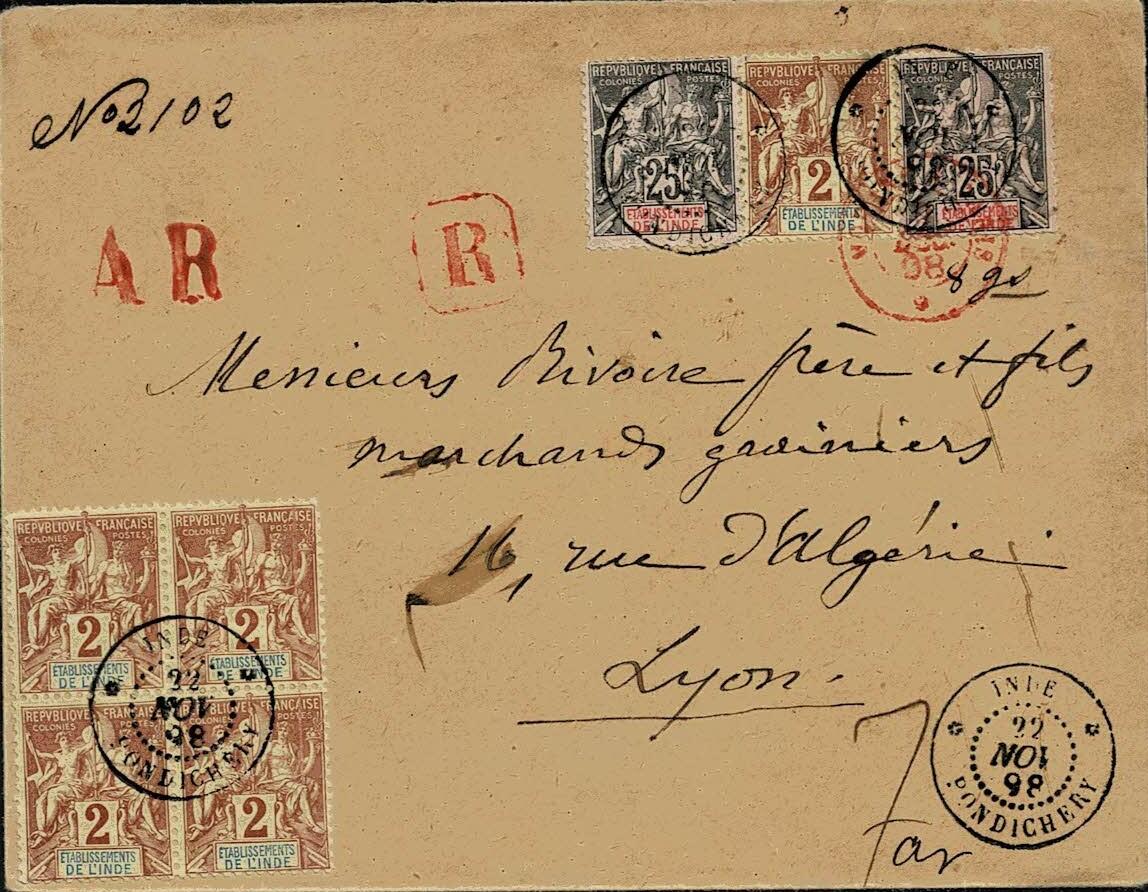 No 2102
REPVBLIQVE FRANÇAISE
COLONIES POSTES
25
ETABLISSEMENTS
DE L'INDE
REPVBLIQVE FRANÇAISE
COLONIES POSTES
2
ETABLISSEMENTS
DE L'INDE
REPVBLIQVE FRANÇAISE
COLONIES POSTES
25
ETABLISSEMENTS
DE L'INDE
NOV
98
98
AR
R
8 gs
Messieurs Rivoire père et fils
marchands grainiers
16, rue d'Algérie
Lyon.
REPVBLIQVE FRANÇAISE
COLONIES POSTES
2
ETABLISSEMENTS
DE L'INDE
REPVBLIQVE FRANÇAISE
COLONIES POSTES
2
ETABLISSEMENTS
DE L'INDE
REPVBLIQVE FRANÇAISE
COLONIES POSTES
2
ETABLISSEMENTS
DE L'INDE
REPVBLIQVE FRANÇAISE
COLONIES POSTES
2
ETABLISSEMENTS
DE L'INDE
INDE
22
NOV
98
PONDICHERY
INDE
22
NOV
98
PONDICHERY